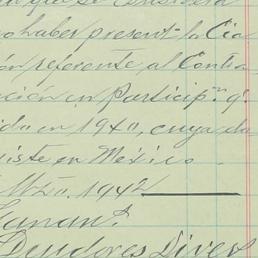 que se considera
no haber present. la Cia
ón referente al Contra
ación en Particip.n q.
do en 1940, cuya do
iste en México
Mzo. 1942
Ganan.s
Deudores Divers